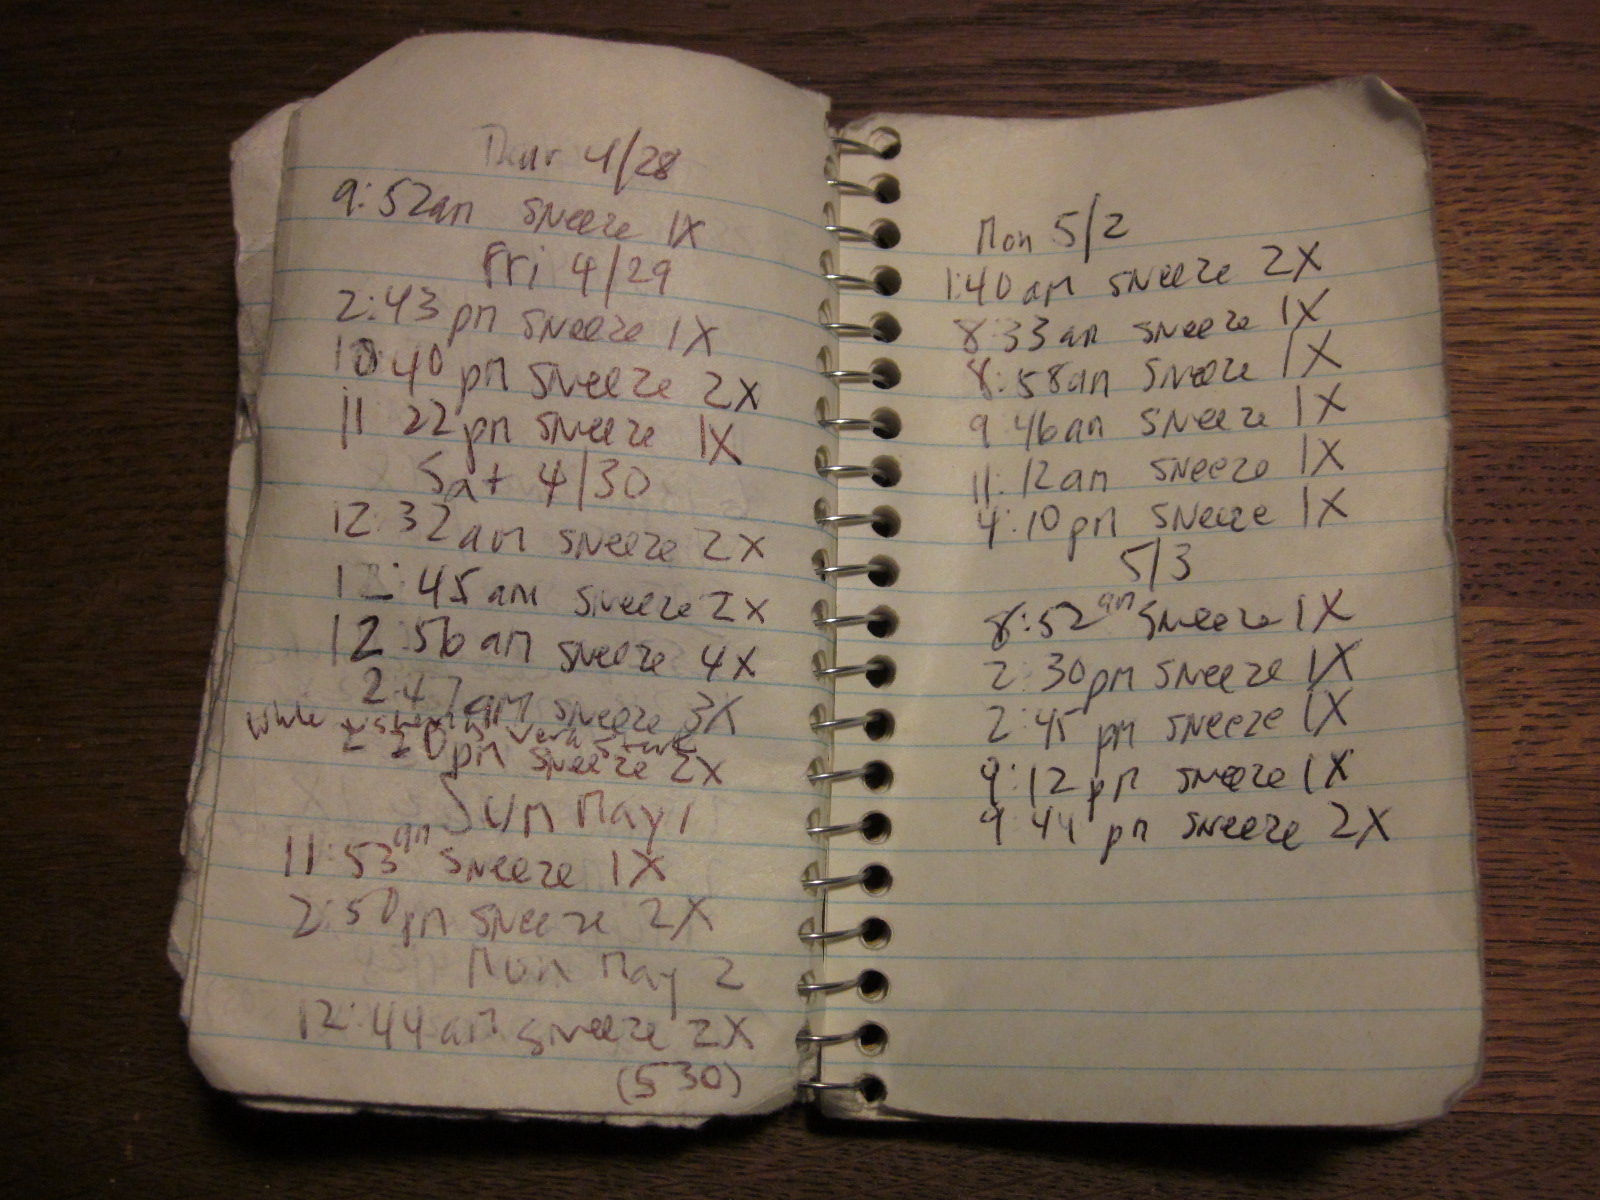 Thur 4/28
9:52am sneeze 1X
Fri 4/29
2:43pm sneeze 1X
10:40pm sneeze 2X
11:22pm sneeze 1X
Sat 4/30
12:32am sneeze 2X
12:45am sneeze 2X
12:56am sneeze 4X
2:47am sneeze 3X
while
2:20pm sneeze 2X
Sun May 1
11:53am sneeze 1X
2:50pm sneeze 2X
Mon May 2
12:44am sneeze 2X
(530)
Mon 5/2
1:40am sneeze 2X
8:33am sneeze 1X
8:58am sneeze 1X
9:46am sneeze 1X
11:12am sneeze 1X
4:10pm sneeze 1X
5/3
8:52am sneeze 1X
2:30pm sneeze 1X
2:45pm sneeze 1X
9:12pm sneeze 1X
9:44pm sneeze 2X